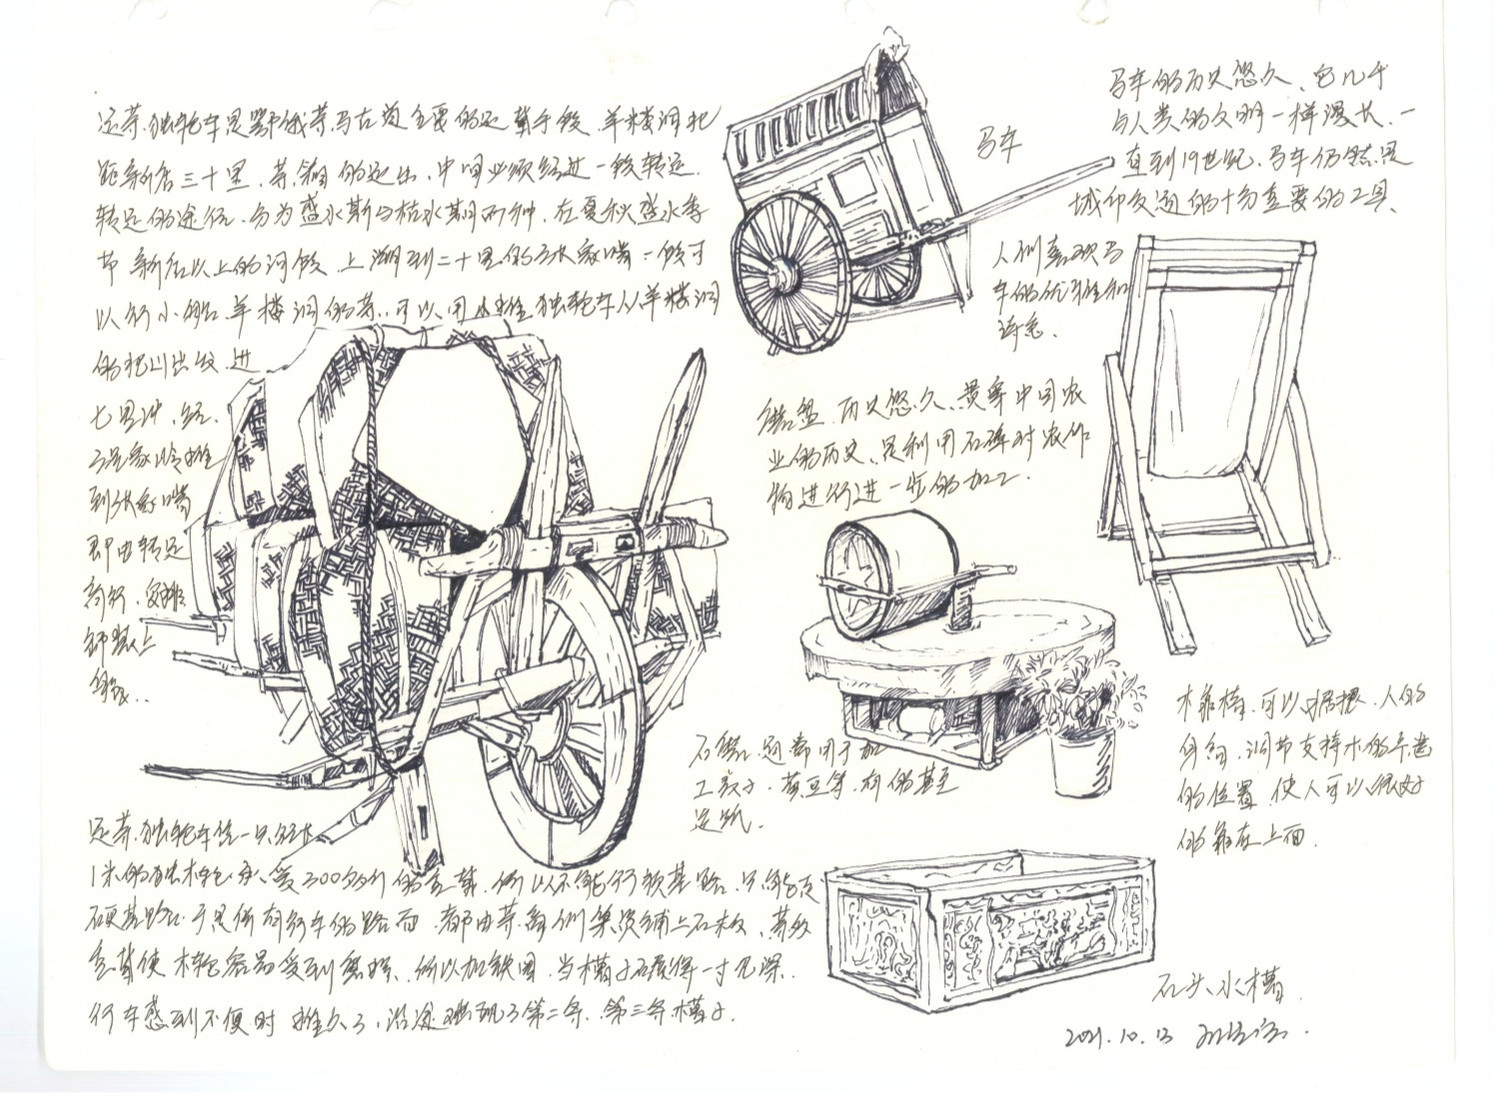 运茶独轮车是鄂俄茶马古道主要的运载手段.羊楼洞把
距新店三十里.茶箱的运出.中间必须经过一段转运.
转运的途径.分为盛水期与枯水期两种.在夏秋盛水季
节新店以上的河段上溯到二十里的张家嘴一段可
以行小船.羊楼洞的茶..可以用小推独轮车从羊楼洞
的 出发.进
七里冲.经.
家岭推
到张家嘴
即由转运
商行.安排
卸装上
船..
马车
马车的历史悠久、它几乎
与人类的文明一样漫长.一
直到19世纪.马车仍然是
城市交通的十分重要的工具.
人们喜欢马
车的优雅和
诗意.
碾盘.历史悠久.贯穿中国农
业的历史、是利用石碾对农作
物进行进一步的加工.
石碾.通常用于加
工麦子.黄豆等.有的甚至
运纸.
木靠椅.可以根据.人的
身高.调节支撑木的卡齿
的位置.使人可以很好
的靠在上面.
运茶独轮车凭一只径长
1米的独木轮承受300多斤的重载.所以不能行软基路.只能
硬基路.于是所有行车的路面.都由茶商们集资铺上石板.
重载使木轮容易受到磨损.所以加铁圈.当槽子碾得一寸几深.
行车感到不便时推久了.沿途出现了第二条.第三条槽子.
石头水槽.
2021.10.13